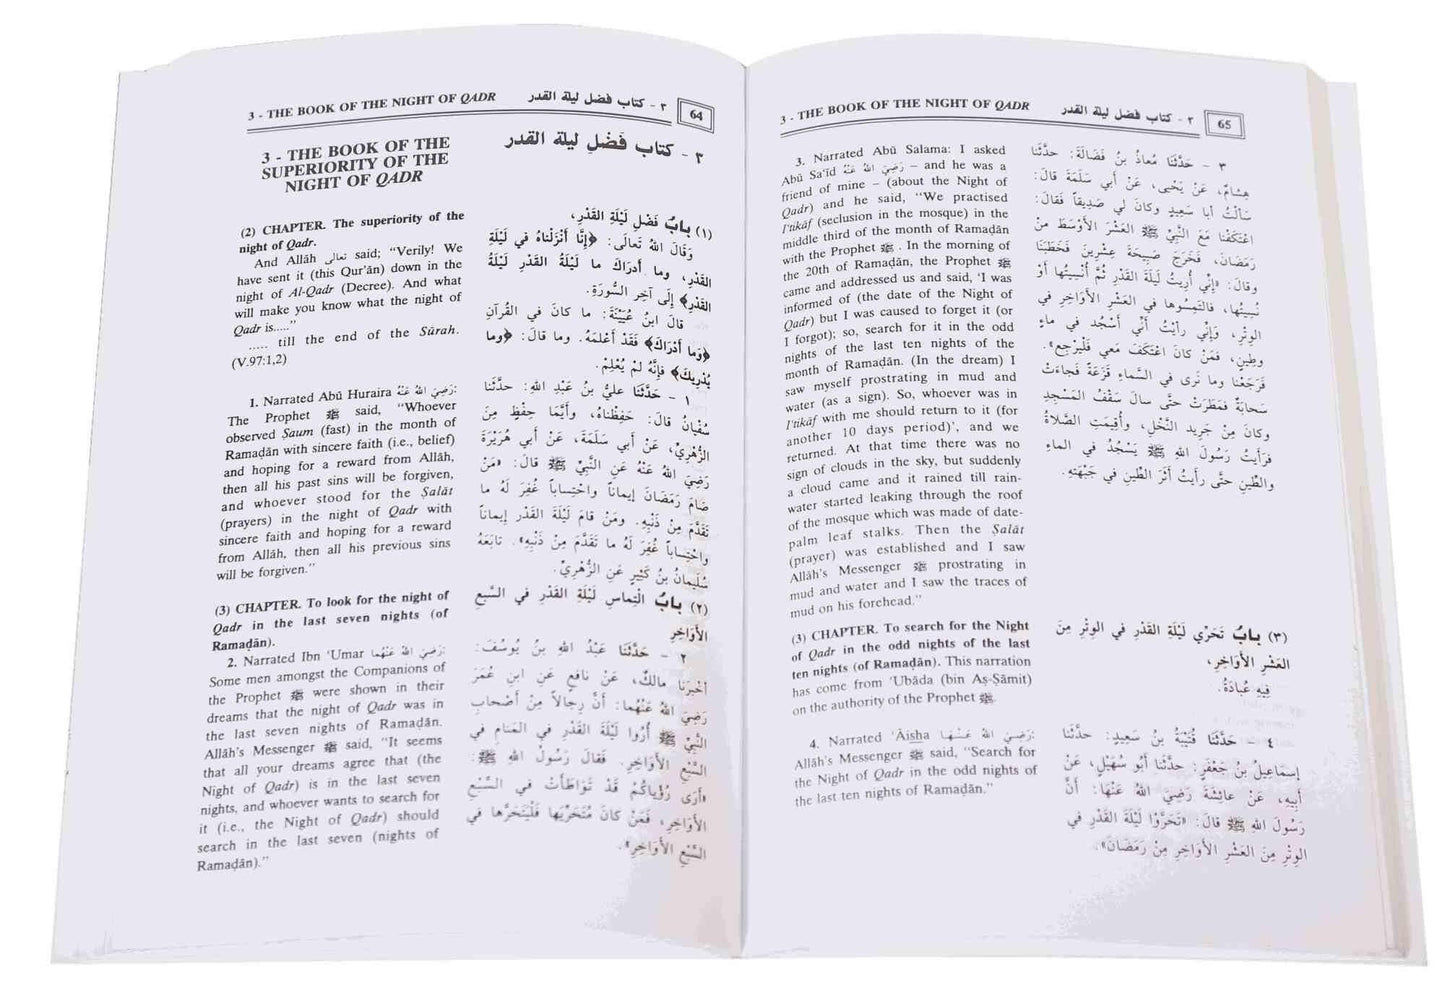 3 - THE BOOK OF THE NIGHT OF QADR ٣ - كتاب فضل ليلة القدر 64
3 - THE BOOK OF THE
SUPERIORITY OF THE
NIGHT OF QADR
(2) CHAPTER. The superiority of the
night of Qadr.
And Allāh تعالى said; “Verily! We
have sent it (this Qur’ān) down in the
night of Al-Qadr (Decree). And what
will make you know what the night of
Qadr is.....”
..... till the end of the Sūrah.
(V.97:1,2)
1. Narrated Abū Huraira رَضِيَ اللهُ عَنْهُ:
The Prophet ﷺ said, “Whoever
observed Ṣaum (fast) in the month of
Ramaḍān with sincere faith (i.e., belief)
and hoping for a reward from Allāh,
then all his past sins will be forgiven,
and whoever stood for the Ṣalāt
(prayers) in the night of Qadr with
sincere faith and hoping for a reward
from Allāh, then all his previous sins
will be forgiven.”
(3) CHAPTER. To look for the night of
Qadr in the last seven nights (of
Ramaḍān).
2. Narrated Ibn ‘Umar رَضِيَ اللهُ عَنْهُما:
Some men amongst the Companions of
the Prophet ﷺ were shown in their
dreams that the night of Qadr was in
the last seven nights of Ramaḍān.
Allāh’s Messenger ﷺ said, “It seems
that all your dreams agree that (the
Night of Qadr) is in the last seven
nights, and whoever wants to search for
it (i.e., the Night of Qadr) should
search in the last seven (nights of
Ramaḍān).”
٣ - كتاب فَضْلِ ليلة القدر
(١) بابُ فَضْلِ لَيْلَةِ القَدْرِ،
وَقَالَ اللهُ تَعالَى: ﴿إِنَّا أَنْزَلْناهُ في لَيْلَةِ
القَدْرِ، وما أَدراكَ ما لَيْلَةُ القَدْرِ لَيْلَةُ
القَدْرِ﴾ إِلَى آخِرِ السُّورَةِ.
قالَ ابنُ عُيَيْنَةَ: ما كانَ في القُرآنِ
﴿وَما أَدْرَاكَ﴾ فَقَدْ أَعْلَمَهُ. وما قالَ: ﴿وما
يُدْرِيكَ﴾ فَإِنَّهُ لَمْ يُعْلِمْ.
١ - حَدَّثَنَا عليُّ بنُ عَبْدِ اللهِ: حدَّثَنا
سُفْيانُ قالَ: حَفِظْناهُ، وأَيَّمَا حِفْظٍ مِنَ
الزُّهْرِيِّ، عَنْ أبي سَلَمَةَ، عَنْ أبي هُرَيْرَةَ
رَضِيَ اللهُ عَنْهُ عَنِ النَّبيِّ ﷺ قالَ: «مَنْ
صَامَ رَمَضَانَ إِيماناً واحْتِساباً غُفِرَ لَهُ ما
تَقَدَّمَ مِنْ ذَنْبِهِ. ومَنْ قامَ لَيْلَةَ القَدْرِ إِيماناً
واحْتِساباً غُفِرَ لَهُ ما تَقَدَّمَ مِنْ ذَنْبِهِ». تابَعَهُ
سُلَيمانُ بنُ كَثِيرٍ عَنِ الزُّهْرِيِّ.
(٢) بابُ الْتِماسِ لَيْلَةِ القَدْرِ في السَّبْعِ
الأَوَاخِرِ
٢ - حَدَّثَنا عَبْدُ اللهِ بنُ يُوسُفَ:
أخبَرَنا مالكٌ، عَنْ نافِعٍ عَنِ ابنِ عُمَرَ
رَضِيَ اللهُ عَنْهُما: أَنَّ رِجالاً مِنْ أَصْحابِ
النَّبيِّ ﷺ أُرُوا لَيْلَةَ القَدْرِ في المَنامِ في
السَّبْعِ الأَوَاخِرِ. فَقالَ رَسُولُ اللهِ ﷺ:
«أَرَى رُؤْياكُمْ قَدْ تَوَاطَأَتْ في السَّبْعِ
الأَوَاخِرِ، فَمَنْ كانَ مُتَحَرِّيَها فَلْيَتَحَرَّها في
السَّبْعِ الأَوَاخِرِ».
3 - THE BOOK OF THE NIGHT OF QADR ٣ - كتاب فضل ليلة القدر 65
3. Narrated Abū Salama: I asked
Abū Sa‘īd رَضِيَ اللهُ عَنْهُ – and he was a
friend of mine – (about the Night of
Qadr) and he said, “We practised
I‘tikāf (seclusion in the mosque) in the
middle third of the month of Ramaḍān
with the Prophet ﷺ . In the morning of
the 20th of Ramaḍān, the Prophet ﷺ
came and addressed us and said, ‘I was
informed of (the date of the Night of
Qadr) but I was caused to forget it (or
I forgot); so, search for it in the odd
nights of the last ten nights of the
month of Ramaḍān. (In the dream) I
saw myself prostrating in mud and
water (as a sign). So, whoever was in
I‘tikāf with me should return to it (for
another 10 days period)’, and we
returned. At that time there was no
sign of clouds in the sky, but suddenly
a cloud came and it rained till rain-
water started leaking through the roof
of the mosque which was made of date-
palm leaf stalks. Then the Ṣalāt
(prayer) was established and I saw
Allāh’s Messenger ﷺ prostrating in
mud and water and I saw the traces of
mud on his forehead.”
(3) CHAPTER. To search for the Night
of Qadr in the odd nights of the last
ten nights (of Ramaḍān). This narration
has come from ‘Ubāda (bin Aṣ-Ṣāmit)
on the authority of the Prophet ﷺ.
4. Narrated ‘Āisha رَضِيَ اللهُ عَنْها:
Allāh’s Messenger ﷺ said, “Search for
the Night of Qadr in the odd nights of
the last ten nights of Ramaḍān.”
٣ - حَدَّثَنَا مُعاذُ بنُ فَضَالَةَ: حدَّثَنا
هِشامٌ، عَنْ يَحْيى، عَنْ أبي سَلَمَةَ قالَ:
سَأَلْتُ أبا سَعِيدٍ وكانَ لي صَدِيقاً فَقالَ:
اعْتَكَفْنا مَعَ النَّبيِّ ﷺ العَشْرَ الأَوْسَطَ مِنْ
رَمَضَانَ، فَخَرَجَ صَبِيحَةَ عِشْرِينَ فَخَطَبَنا
وقالَ: «إِنِّي أُرِيتُ لَيْلَةَ القَدْرِ ثُمَّ أُنْسِيتُها أَوْ
نُسِّيتُها، فالتَمِسُوها في العَشْرِ الأَوَاخِرِ في
الوِتْرِ، وَإِنِّي رأيتُ أَنِّي أَسْجُدُ في ماءٍ
وطِينٍ، فَمَنْ كانَ اعْتَكَفَ مَعي فَلْيَرْجِعْ».
فَرَجَعْنا وما نَرى في السَّماءِ قَزَعَةً فَجاءَتْ
سَحابَةٌ فَمَطَرَتْ حتَّى سالَ سَقْفُ المَسْجِدِ
وكانَ مِنْ جَرِيدِ النَّخْلِ، وأُقِيمَتِ الصَّلاةُ
فَرَأَيتُ رَسُولَ اللهِ ﷺ يَسْجُدُ في الماءِ
والطِّينِ حتَّى رأيتُ أَثَرَ الطِّينِ في جَبْهَتِهِ.
(٣) بابُ تَحَرِّي لَيْلَةِ القَدْرِ في الوِتْرِ مِنَ
العَشْرِ الأَوَاخِرِ،
فِيهِ عُبادَةُ.
٤ - حَدَّثَنا قُتَيْبَةُ بنُ سَعِيدٍ: حدَّثَنا
إسماعيلُ بنُ جَعْفَرٍ: حدَّثَنا أَبُو سُهَيْلٍ، عَنْ
أَبِيهِ، عَنْ عائِشَةَ رَضِيَ اللهُ عَنْها: أَنَّ
رَسُولَ اللهِ ﷺ قالَ: «تَحَرَّوْا لَيْلَةَ القَدْرِ في
الوِتْرِ مِنَ العَشْرِ الأَوَاخِرِ مِنْ رَمَضَانَ».